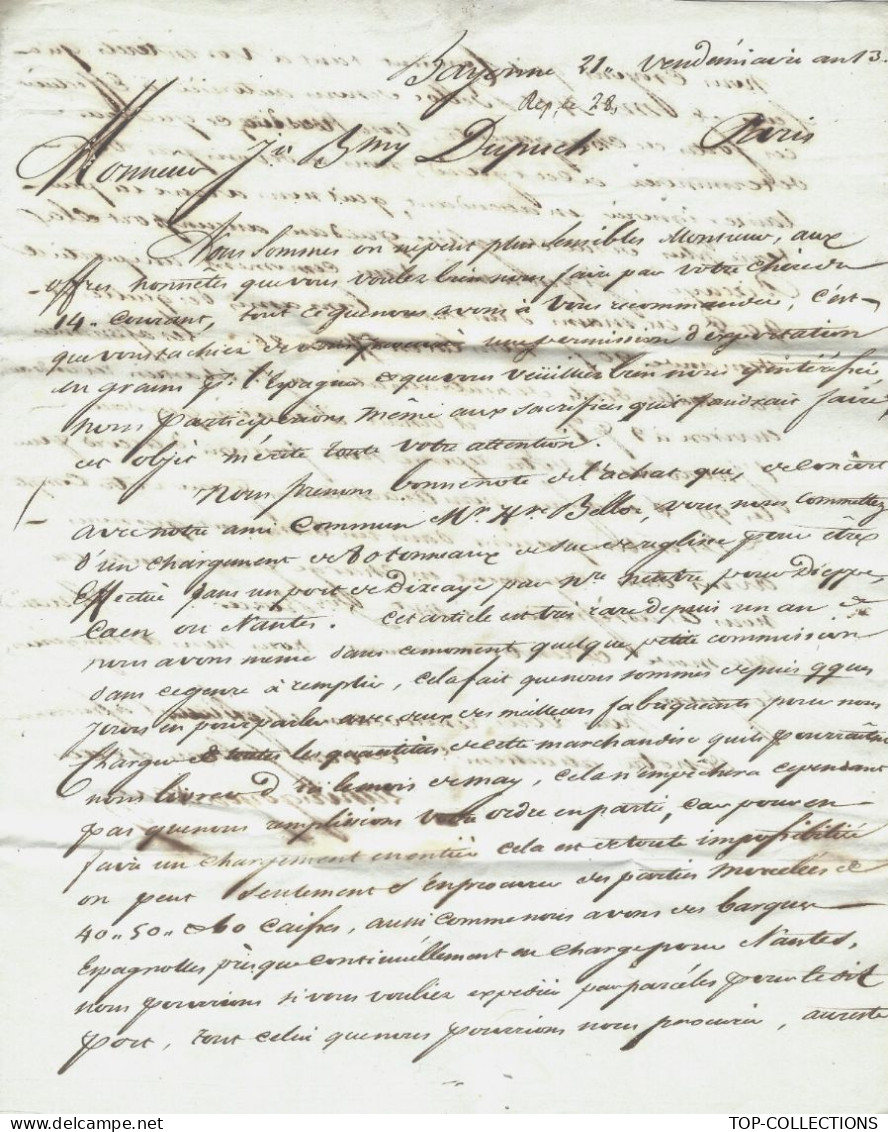 Bayonne 21. Vendémiaire an 13.
Rep. le 28.
Monsieur Jn Bmy Dupuch Paris
Nous sommes on ne peut plus sensibles Monsieur, aux
offres honnêtes que vous voulez bien nous faire par votre chère du
14. Courant, tout ce que nous avons à vous recommander, c'est
que vous tachiez de une permission d'exportation
en grains pr. l'Espagne et que vous veuilliez bien nous y intéresser
nous participerions même aux sacrifices qu'il faudrait faire,
cet objet mérite toute votre attention.
Nous prenons bonne note de l'achat que, de concert
avec notre ami commun Mr. Hre. Belloc, vous nous commettez
d'un chargement de 80 tonneaux de suc de reglisse pour être
Effectué dans un port de Bizcaye par nre. neutre pour Dieppe,
Caen ou Nantes. Cet article est très rare depuis un an &
nous avons même dans ce moment quelque petite commission
dans ce genre à remplir, cela fait que nous sommes depuis qques
jours en pour parler avec deux des meilleurs fabriquants pour nous
charger de toutes les quantités de cette marchandise qu'ils pourraient
nous livrer d'ici le mois de may, cela n'empêchera cependant
pas que nous remplirions votre ordre en partie, car pour en
faire un chargement en entier cela est de toute impossibilité
on peut seulement s'en procurer des parties morcelées de
40. 50. à 60 caisses, aussi comme nous avons des barques
Espagnolles présque continuëllement en charge pour Nantes,
nous pourrions si vous vouliez expédier par parcéles pour le dit
port, tout celui que nous pourrions nous procurer, au reste
TOP-COLLECTIONS